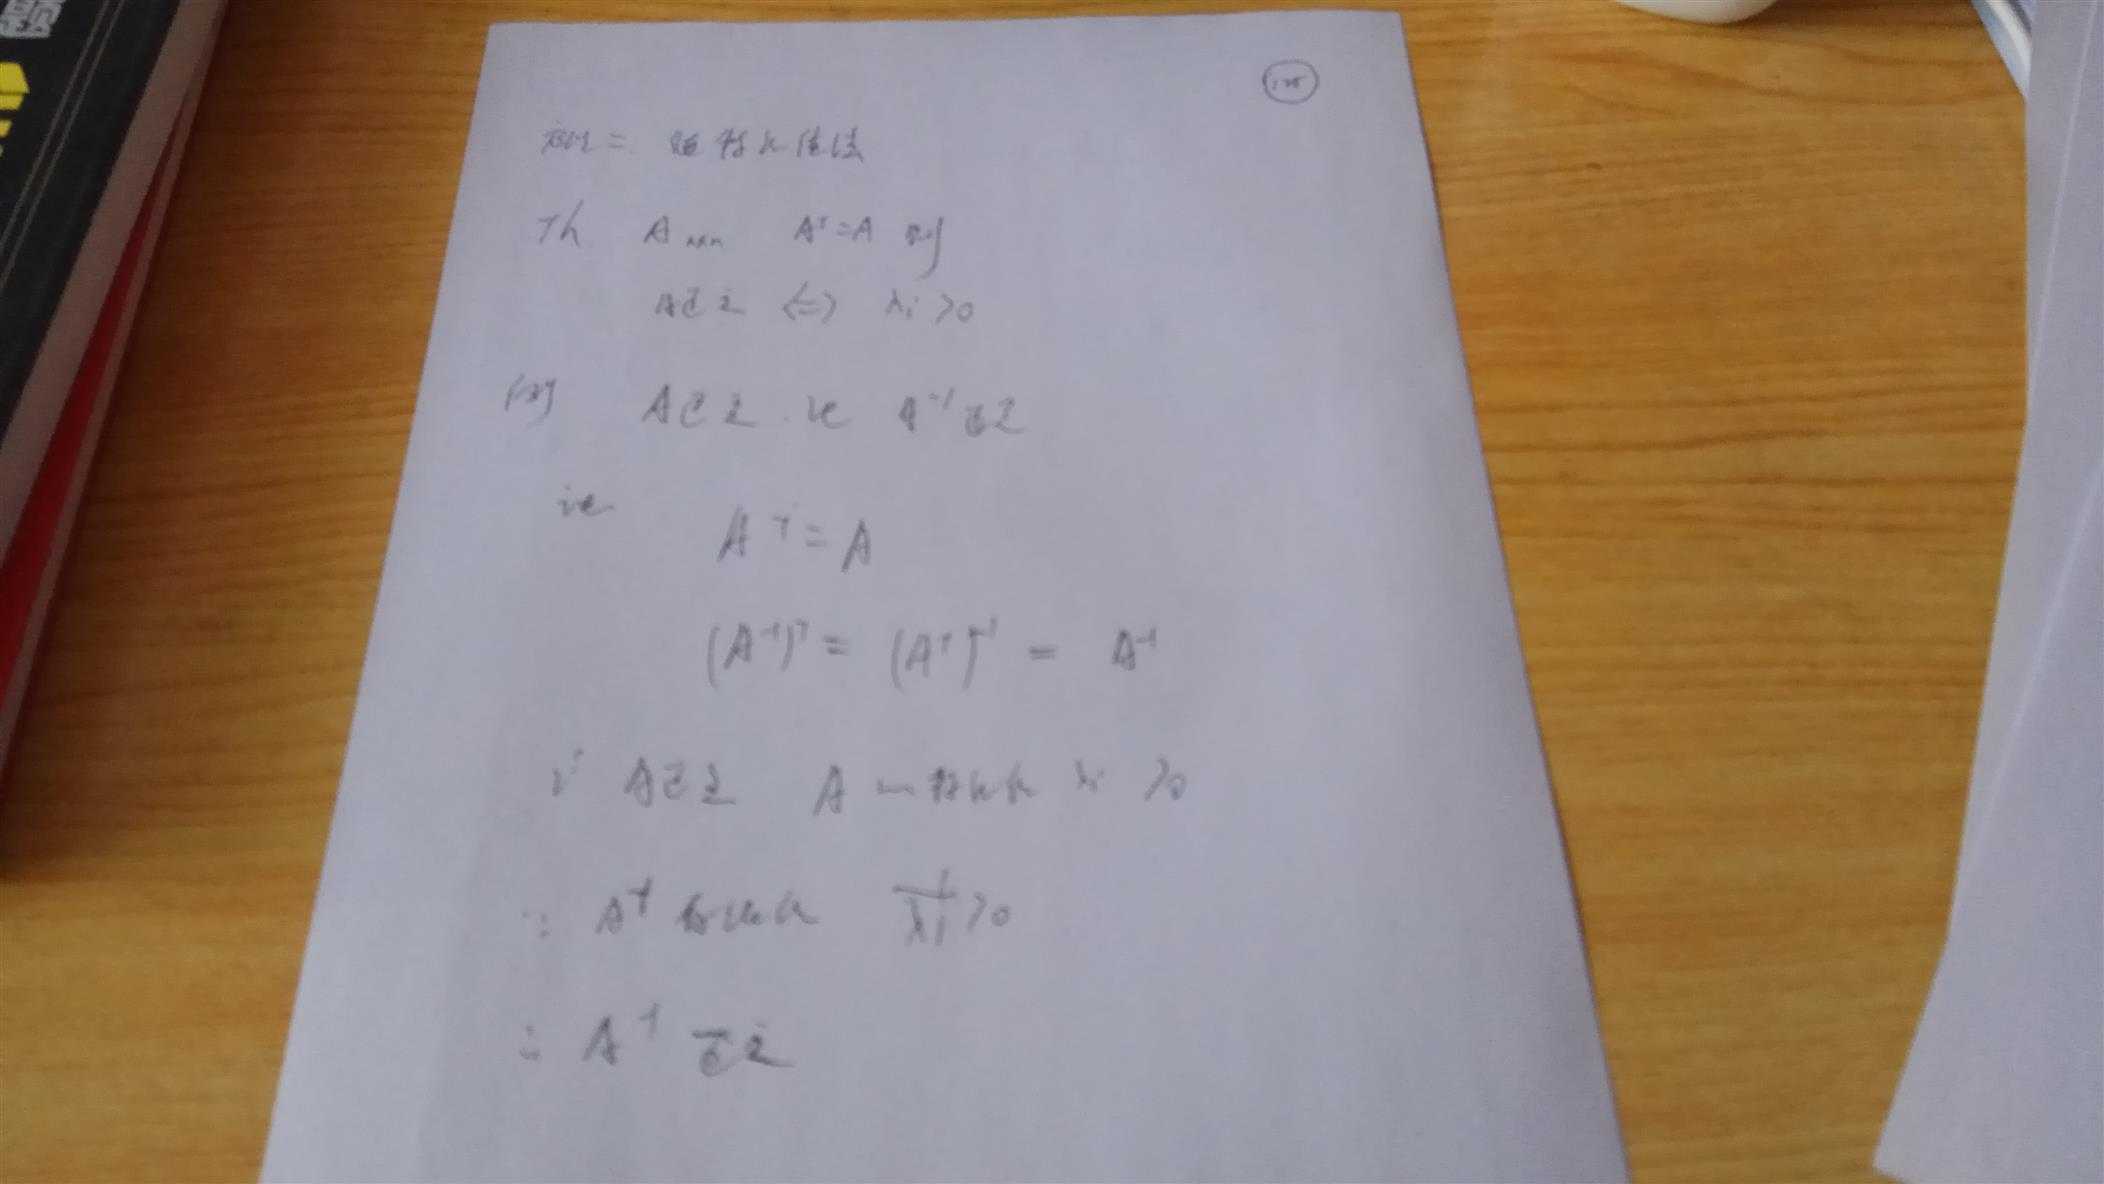 题
125
方法二 特征值法
Th A n×n Aᵀ=A 则
A正定 ⇔ λi >0
例 A正定. 证 A⁻¹正定
证 Aᵀ = A
(A⁻¹)ᵀ = (Aᵀ)⁻¹ = A⁻¹
∵ A正定 A 特征值 λi >0
∴ A⁻¹ 特征值 1/λi >0
∴ A⁻¹ 正定